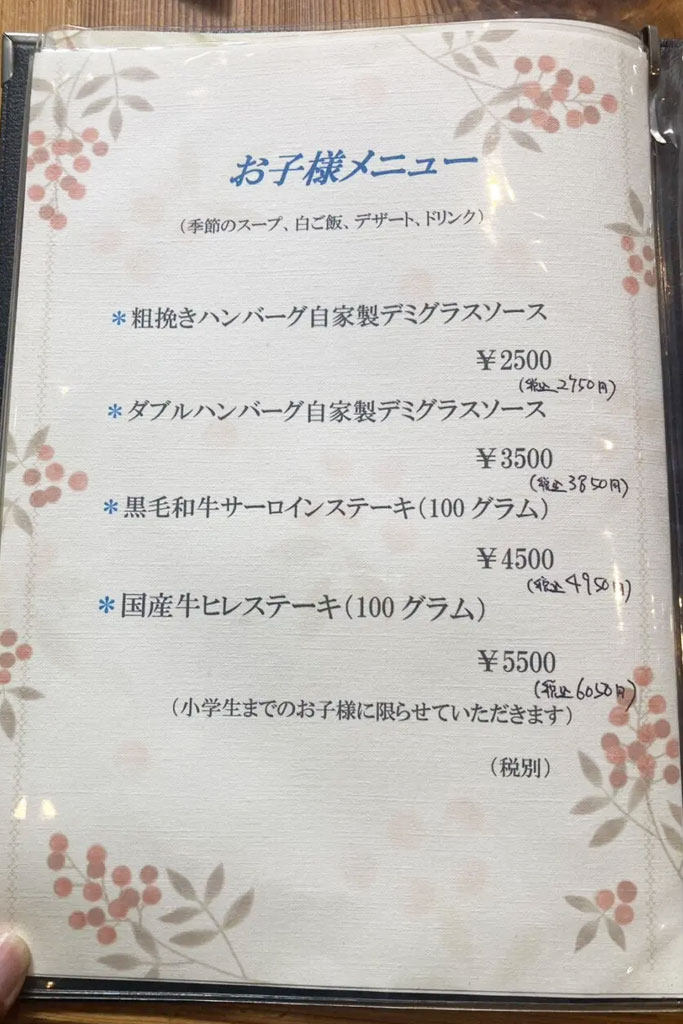 お子様メニュー
（季節のスープ、白ご飯、デザート、ドリンク）
＊粗挽きハンバーグ自家製デミグラスソース
￥2500
(税込2750円)
＊ダブルハンバーグ自家製デミグラスソース
￥3500
(税込3850円)
＊黒毛和牛サーロインステーキ（100グラム）
￥4500
(税込4950円)
＊国産牛ヒレステーキ（100グラム）
￥5500
(税込6050円)
（小学生までのお子様に限らせていただきます）
（税別）